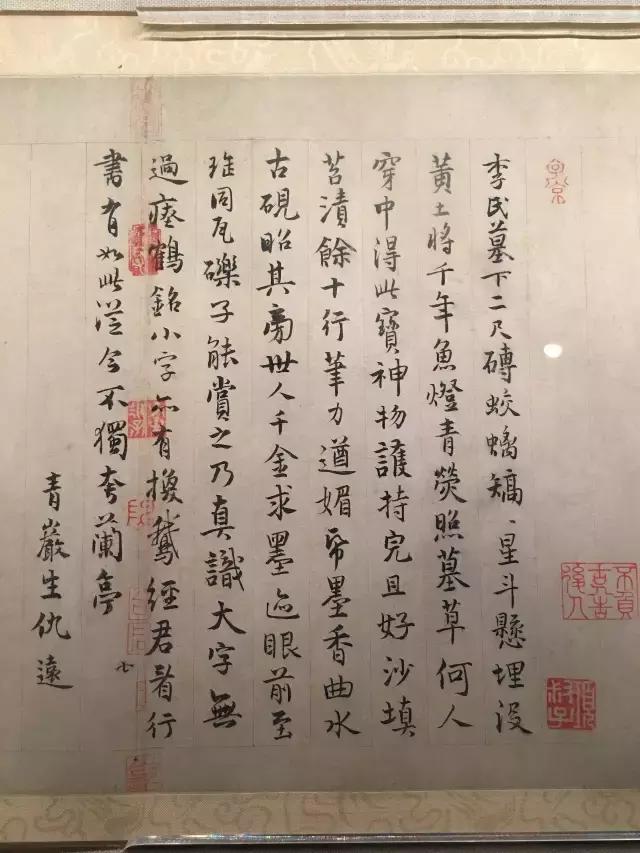 李氏墓下二尺磚蛟螭矯〻星斗懸埋没
黄土將千年魚燈青熒照墓草何人
穿中得此寶神物護持完且好沙填
苔漬餘十行筆力遒媚帋墨香曲水
古硯昭其旁世人千金求墨迹眼前至
珤同瓦礫子能賞之乃真識大字無
過瘗鶴銘小字亦有換鵞經君看行
書有如此從今不獨夸蘭亭
青巖生仇遠